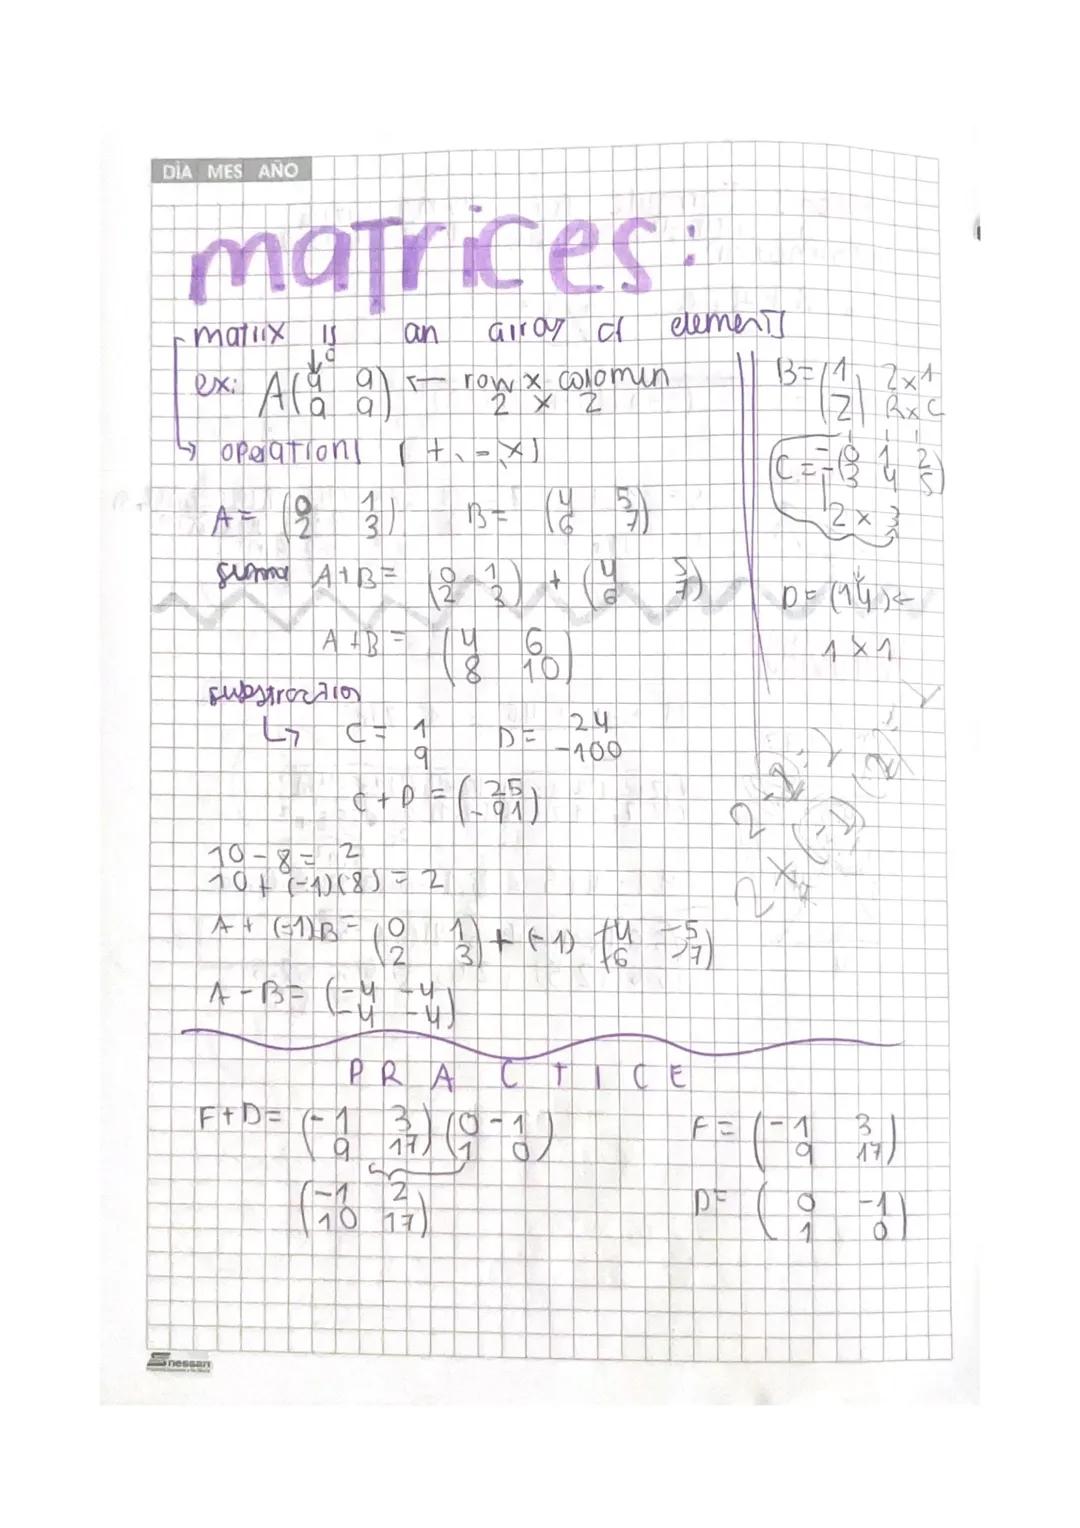 DÌA MES AÑO
matrices:
matrix is an array of elements
ex: A(a a) ← row x colomun
(a a) 2 x 2
↳ operations (+, -, x)
A = (0 1) B = (4 5)
(2 3) (6 7)
suma A+B = (0 1) + (4 5)
(2 3) (6 7)
A+B = (4 6)
(8 10)
substraction
↳ C = 1 D = 24
9 -100
C+D = (25)
(-91)
10 - 8 = 2
10 + (-1)(8) = 2
A + (-1)B = (0 1) + (-1) (4 -5)
(2 3) (6 -7)
A - B = (-4 -4)
(-4 -4)
B = (1) 2x1
(2) RxC
C = (0 1 2)
(3 4 5)
2 x 3
D = (14) ←
1 x 1
PRACTICE
F+D = (-1 3) (0 -1)
(9 17) (1 0)
(-1 2)
(10 17)
F = (-1 3)
(9 17)
D = (0 -1)
(1 0)
nessan